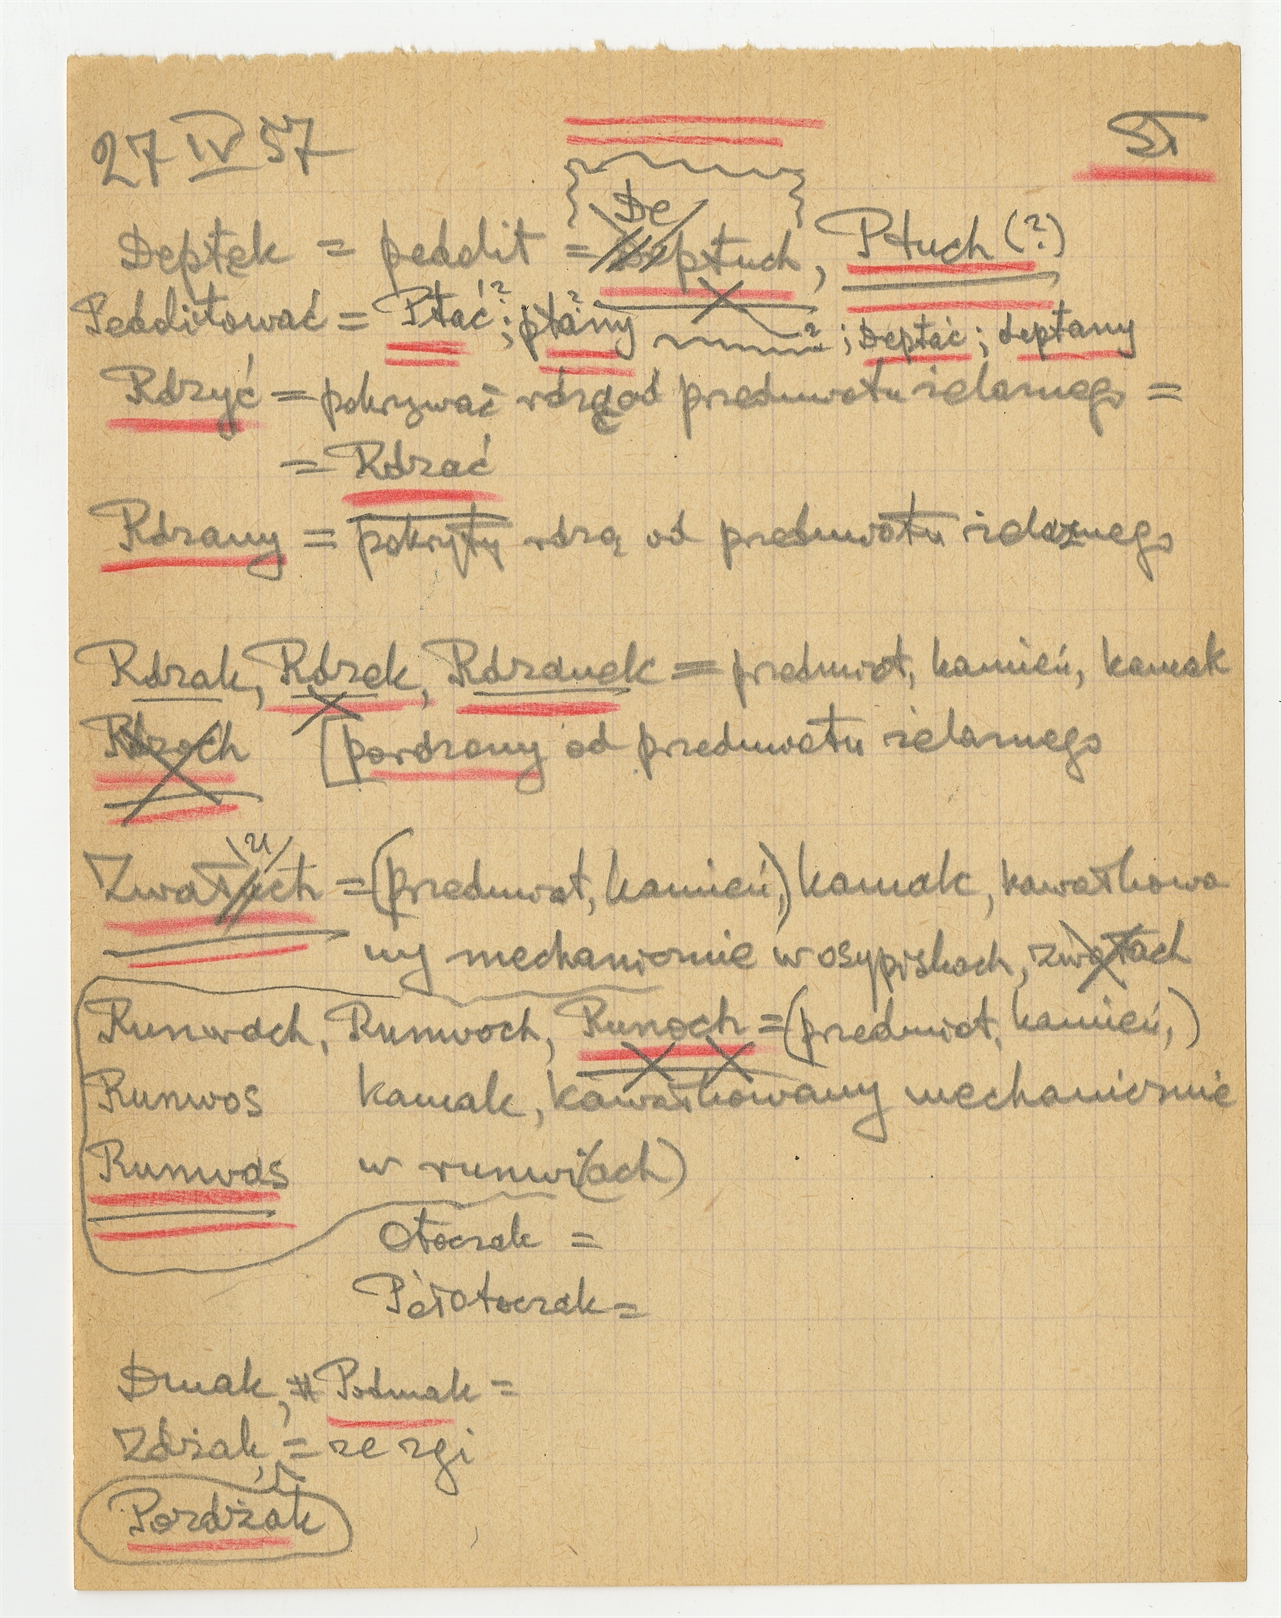 27 IV 57 ST
De
Deptęk = peddit = Deptuch, Ptuch (?)
Pedditować = Ptać !?; ptany ? ?; Deptać; deptany
Rdzyć = pokrywać rdzą od przedmiotu żelaznego =
= Rdzać
Rdzany = pokryty rdzą od przedmiotu żelaznego
Rdzak, Rdzek, Rdzanek = przedmiot, kamień, kamak
Rdzoch [pordzany od przedmiotu żelaznego
u
Zwałach = (przedmiot, kamień,) kamak, kawałkowa
ny mechanicznie w osypiskach, zwałach
Rumwach, Rumwoch, Rumoch = (przedmiot, kamień,)
Rumwos kamak, kawałkowany mechanicznie
Rumwas w rumwi(ach)
Otoczak =
Półotoczak =
Dmak, # Podmak =
Zdżak, = ze zgi
Pozdżak